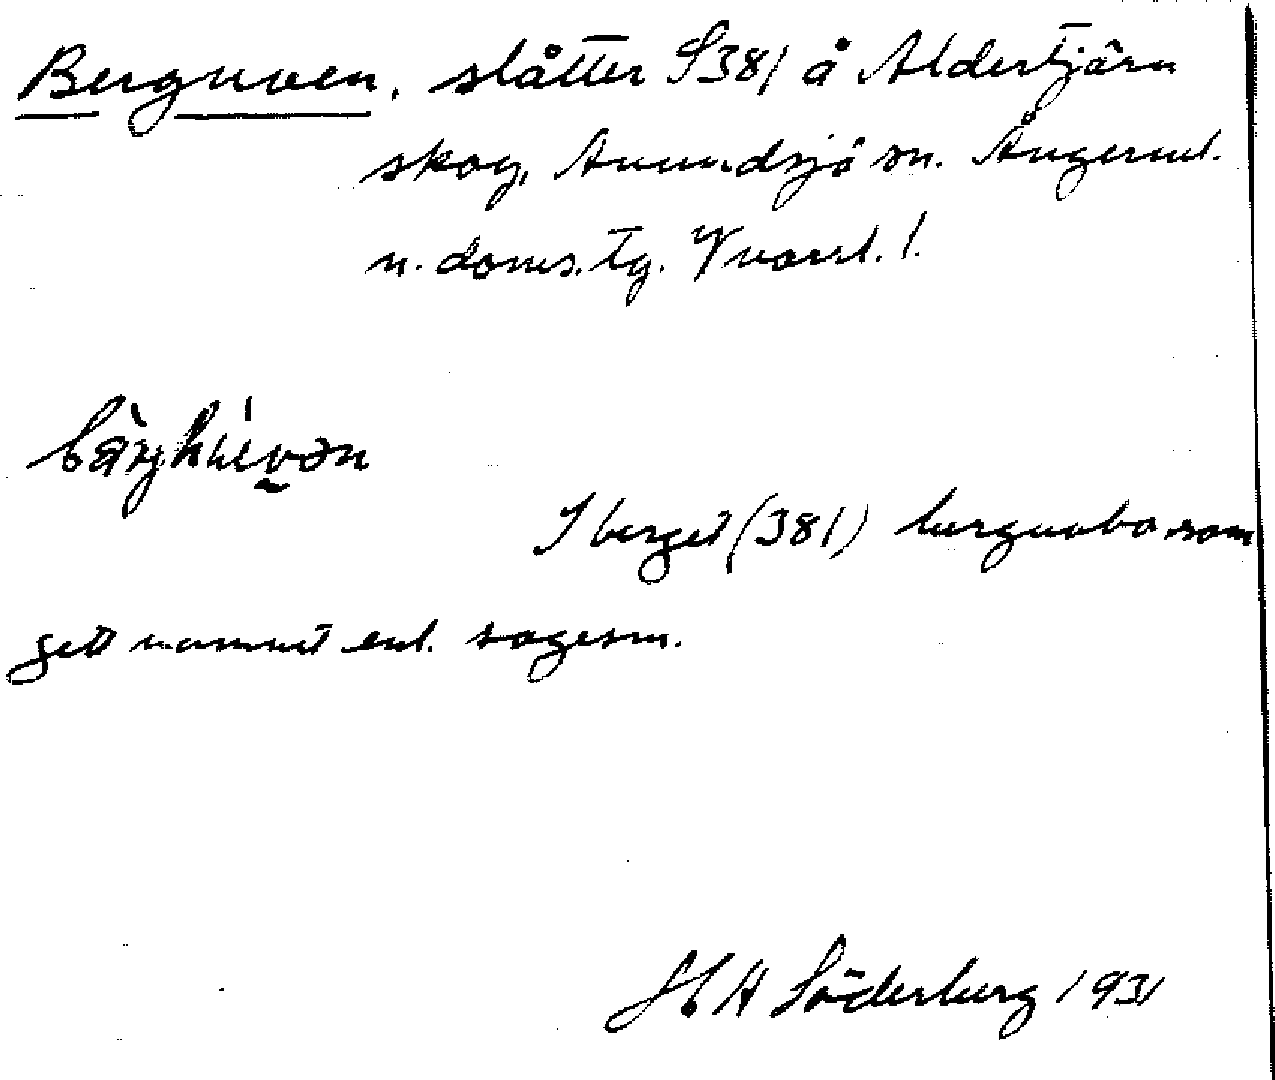 Berguven, slåtter S381 å Aldertjärn
skog, Anundsjö sn. Ångerml.
n. doms. tg. Vnorrl. !
I berget (381) berguvbo som
gett namnet enl. sagesm.
H Söderberg 1931